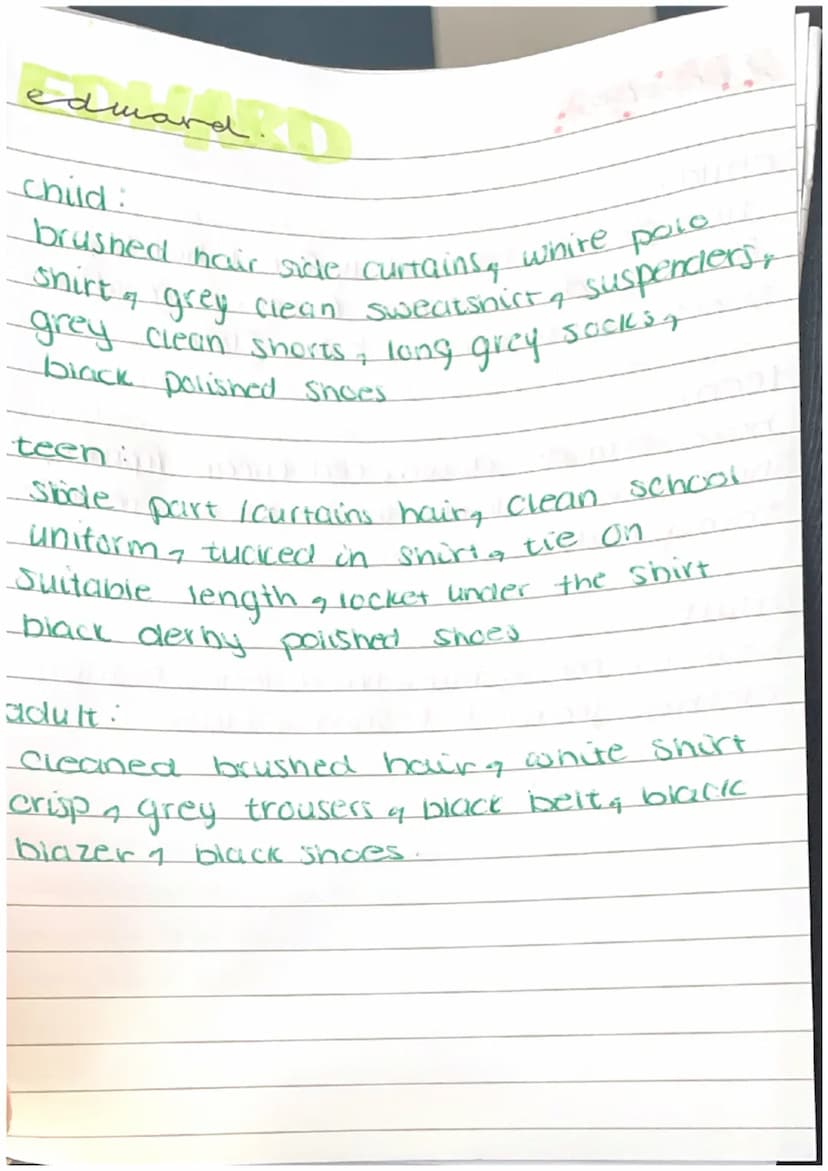 EDWARD
edward.
child:
brushed hair side curtains, white polo
shirt, grey clean sweatshirt, suspenders,
grey clean shorts, long grey socks,
black polished shoes
teen:
side part /curtains hair, clean school
uniform, tucked in shirt, tie on
suitable length, locket under the shirt
black derby polished shoes
adult:
cleaned brushed hair, white shirt
crisp, grey trousers, black belt, black
blazer, black shoes.